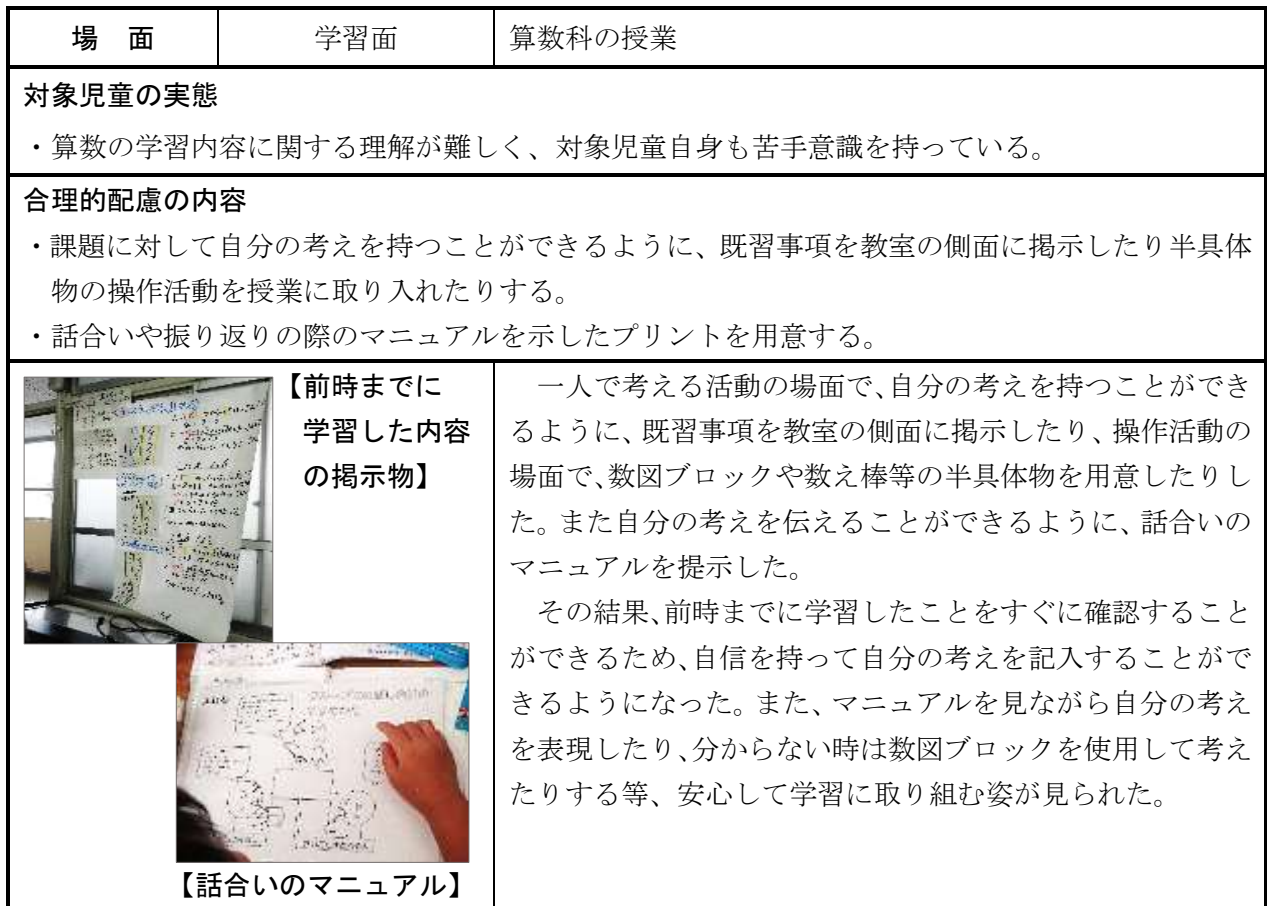 場　面
学習面
算数科の授業
対象児童の実態
・算数の学習内容に関する理解が難しく、対象児童自身も苦手意識を持っている。
合理的配慮の内容
・課題に対して自分の考えを持つことができるように、既習事項を教室の側面に掲示したり半具体
物の操作活動を授業に取り入れたりする。
・話合いや振り返りの際のマニュアルを示したプリントを用意する。
【前時までに
学習した内容
の掲示物】
【話合いのマニュアル】
一人で考える活動の場面で、自分の考えを持つことができ
るように、既習事項を教室の側面に掲示したり、操作活動の
場面で、数図ブロックや数え棒等の半具体物を用意したりし
た。また自分の考えを伝えることができるように、話合いの
マニュアルを提示した。
その結果、前時までに学習したことをすぐに確認すること
ができるため、自信を持って自分の考えを記入することがで
きるようになった。また、マニュアルを見ながら自分の考え
を表現したり、分からない時は数図ブロックを使用して考え
たりする等、安心して学習に取り組む姿が見られた。